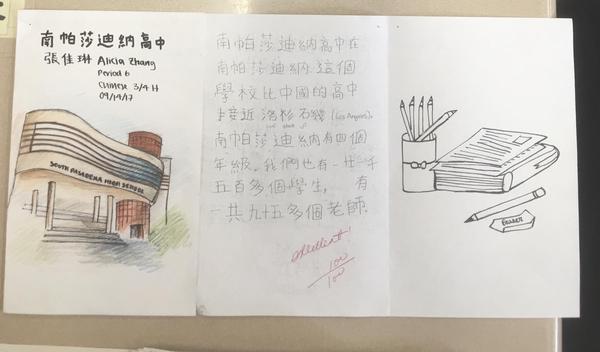 南帕莎迪納高中
張佳琳 Alicia Zhang
Period 6
Chinese 3/4 H
09/14/17
SOUTH PASADENA HIGH SCHOOL
南帕莎迪納高中在
南帕莎迪納.這個
學校比中國的高中
接近洛杉石磯 (Los Angeles).
南帕莎迪納有四個
年級.我們也有一千
五百多個學生. 有
一共九十五多個老師.
excellent!
100
100
Eraser